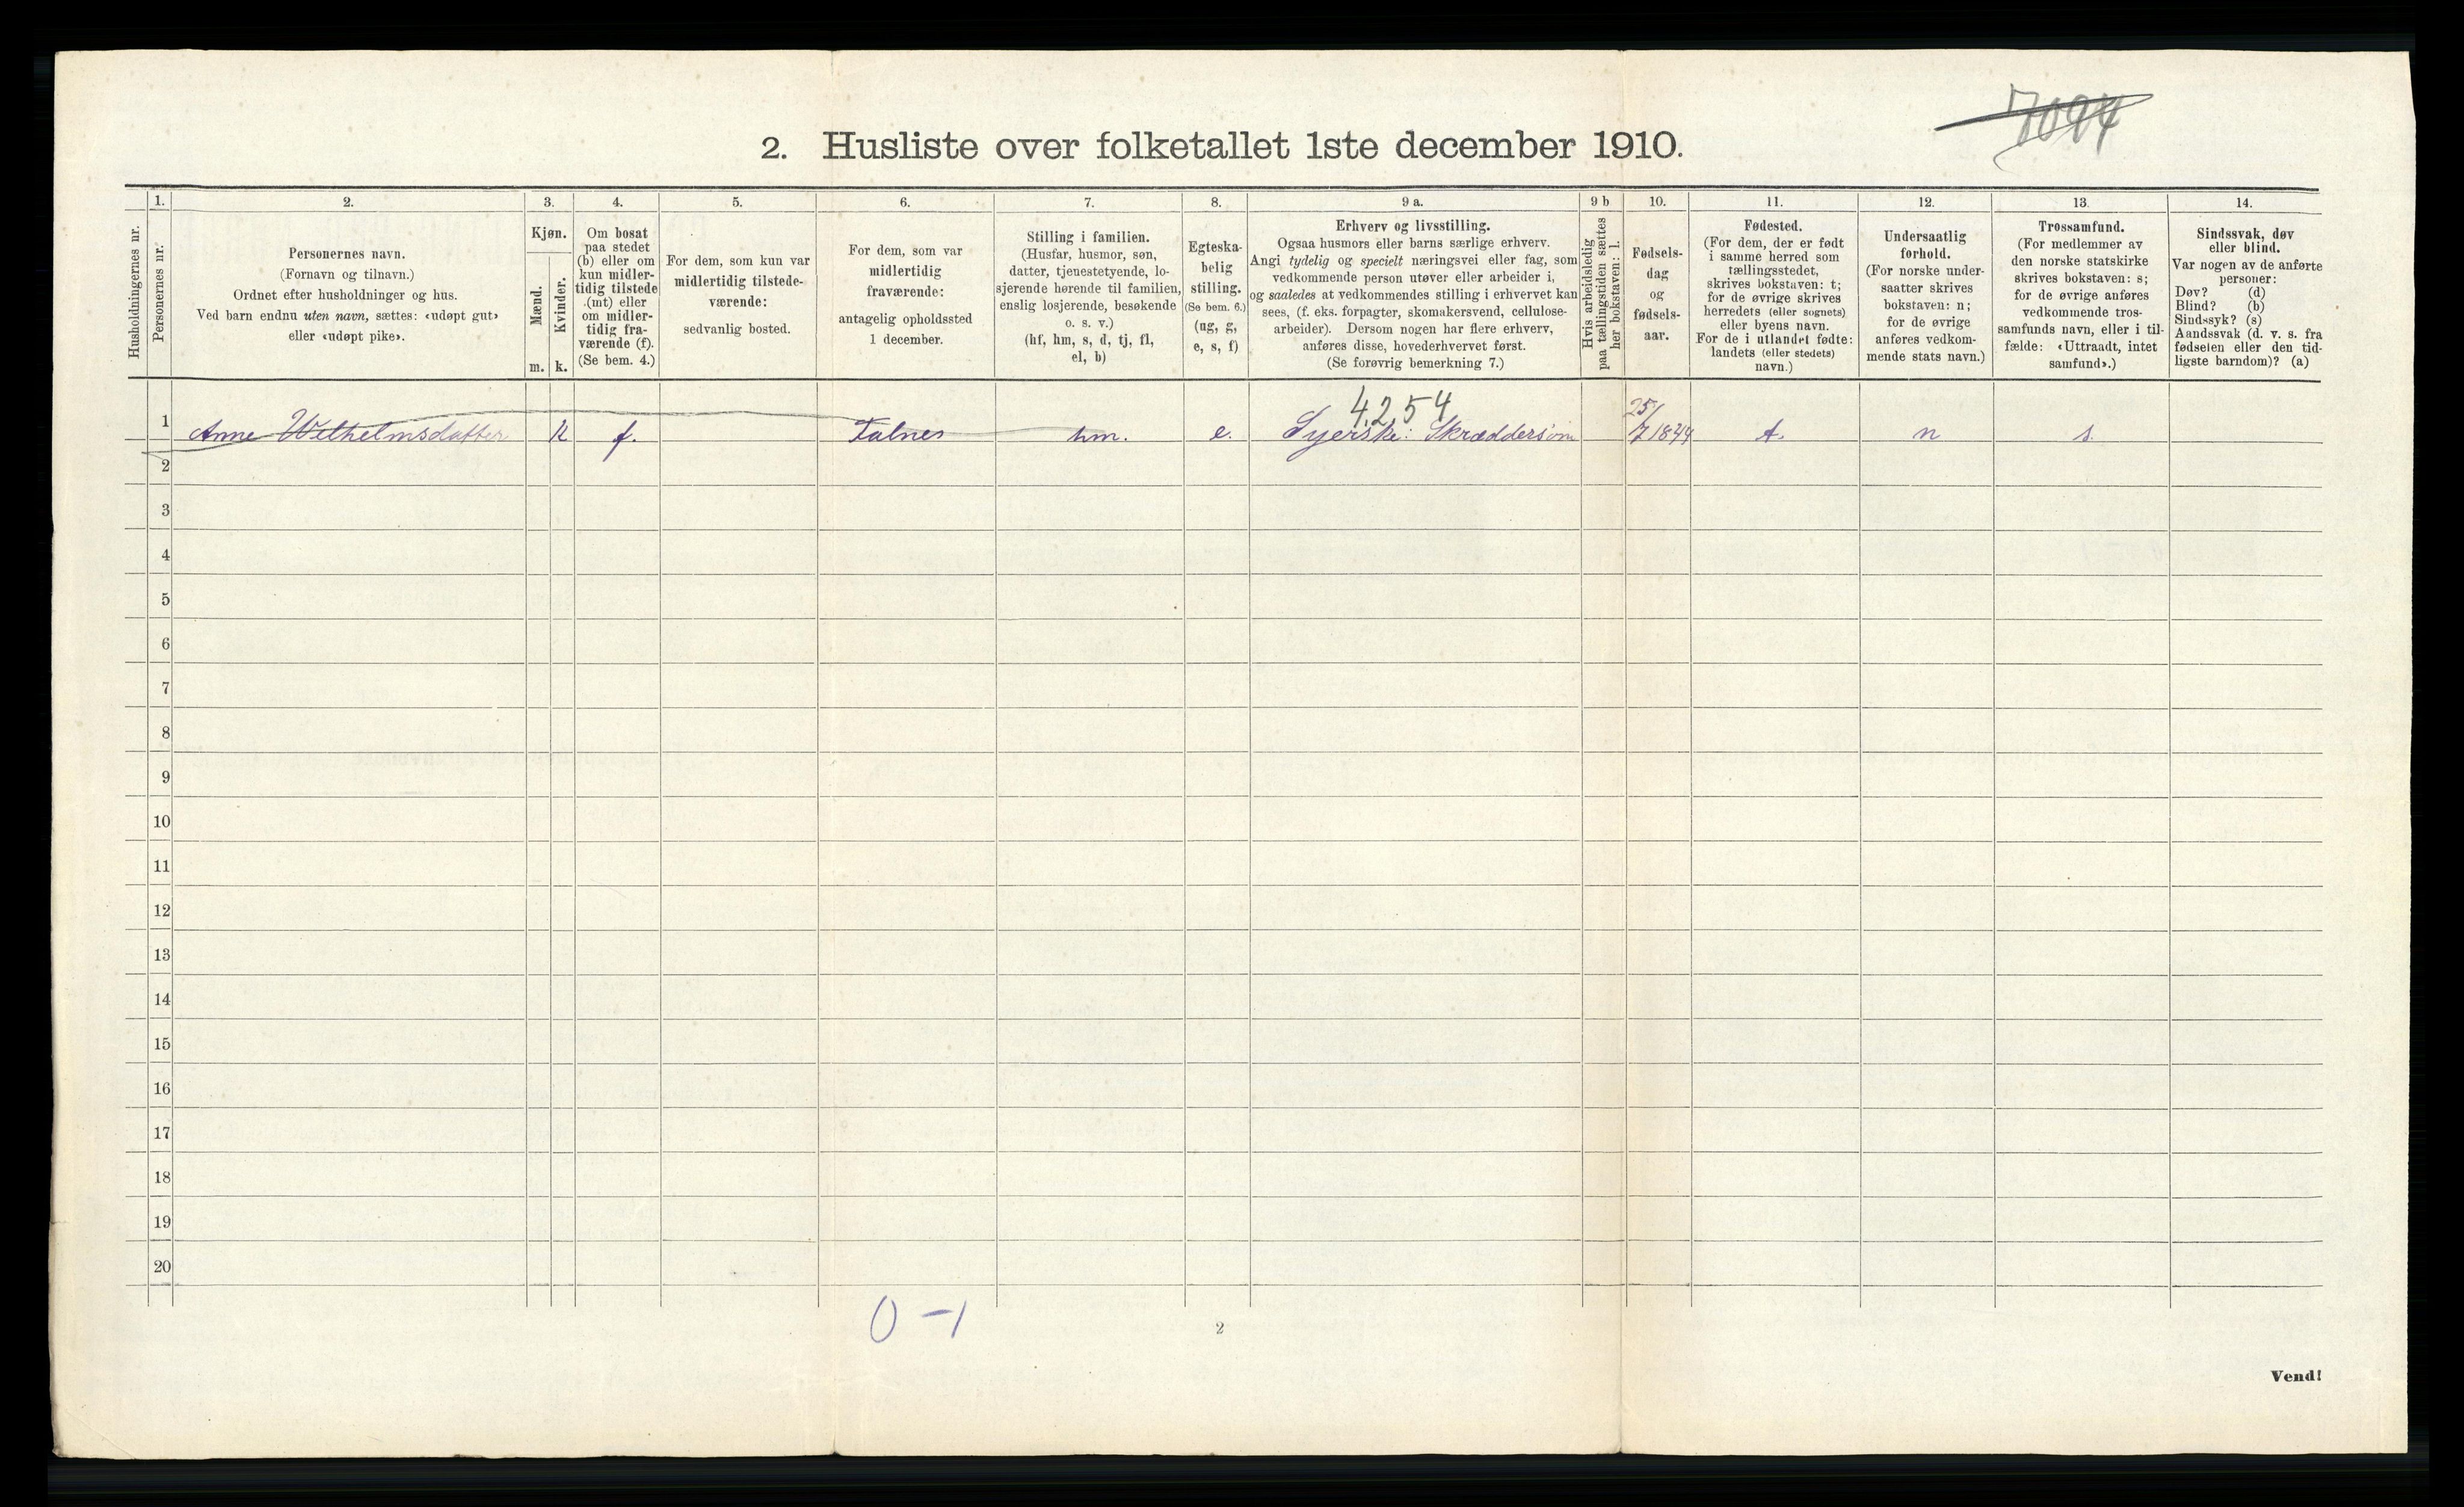 7094
2. Husliste over folketallet 1ste december 1910.
Husholdningernes nr.
1.
Personernes nr.
2.
Personernes navn.
(Fornavn og tilnavn.)
Ordnet efter husholdninger og hus.
Ved barn endnu uten navn, sættes: «udøpt gut»
eller «udøpt pike».
3.
Kjøn.
Mænd.
Kvinder.
m. k.
4.
Om bosat
paa stedet
(b) eller om
kun midler-
tidig tilstede
(mt) eller
om midler-
tidig fra-
værende (f).
(Se bem. 4.)
5.
For dem, som kun var
midlertidig tilstede-
værende:
sedvanlig bosted.
6.
For dem, som var
midlertidig
fraværende:
antagelig opholdssted
1 december.
7.
Stilling i familien.
(Husfar, husmor, søn,
datter, tjenestetyende, lo-
sjerende hørende til familien,
enslig losjerende, besøkende
o. s. v.)
(hf, hm, s, d, tj, fl,
el, b)
8.
Egteska-
belig
stilling.
(Se bem. 6.)
(ug, g,
e, s, f)
9 a.
Erhverv og livsstilling.
Ogsaa husmors eller barns særlige erhverv.
Angi tydelig og specielt næringsvei eller fag, som
vedkommende person utøver eller arbeider i,
og saaledes at vedkommendes stilling i erhvervet kan
sees, (f. eks. forpagter, skomakersvend, cellulose-
arbeider). Dersom nogen har flere erhverv,
anføres disse, hovederhvervet først.
(Se forøvrig bemerkning 7.)
9 b
Hvis arbeidsledig
paa tællingstiden sættes
her bokstaven: l.
10.
Fødsels-
dag
og
fødsels-
aar.
11.
Fødested.
(For dem, der er født
i samme herred som
tællingsstedet,
skrives bokstaven: t;
for de øvrige skrives
herredets (eller sognets)
eller byens navn.
For de i utlandet fødte:
landets (eller stedets)
navn.)
12.
Undersaatlig
forhold.
(For norske under-
saatter skrives
bokstaven: n;
for de øvrige
anføres vedkom-
mende stats navn.)
13.
Trossamfund.
(For medlemmer av
den norske statskirke
skrives bokstaven: s;
for de øvrige anføres
vedkommende tros-
samfunds navn, eller i til-
fælde: «Uttraadt, intet
samfund».)
14.
Sindssvak, døv
eller blind.
Var nogen av de anførte
personer:
Døv? (d)
Blind? (b)
Sindssyk? (s)
Aandssvak (d. v. s. fra
fødselen eller den tid-
ligste barndom)? (a)
4.254
1 Anne Wilhelmsdatter k f. Falnes hm. e. Syerske: Skræddersøm 25/7 1844 t. n s.
2
3
4
5
6
7
8
9
10
11
12
13
14
15
16
17
18
19
20
0 - 1
2
Vend!